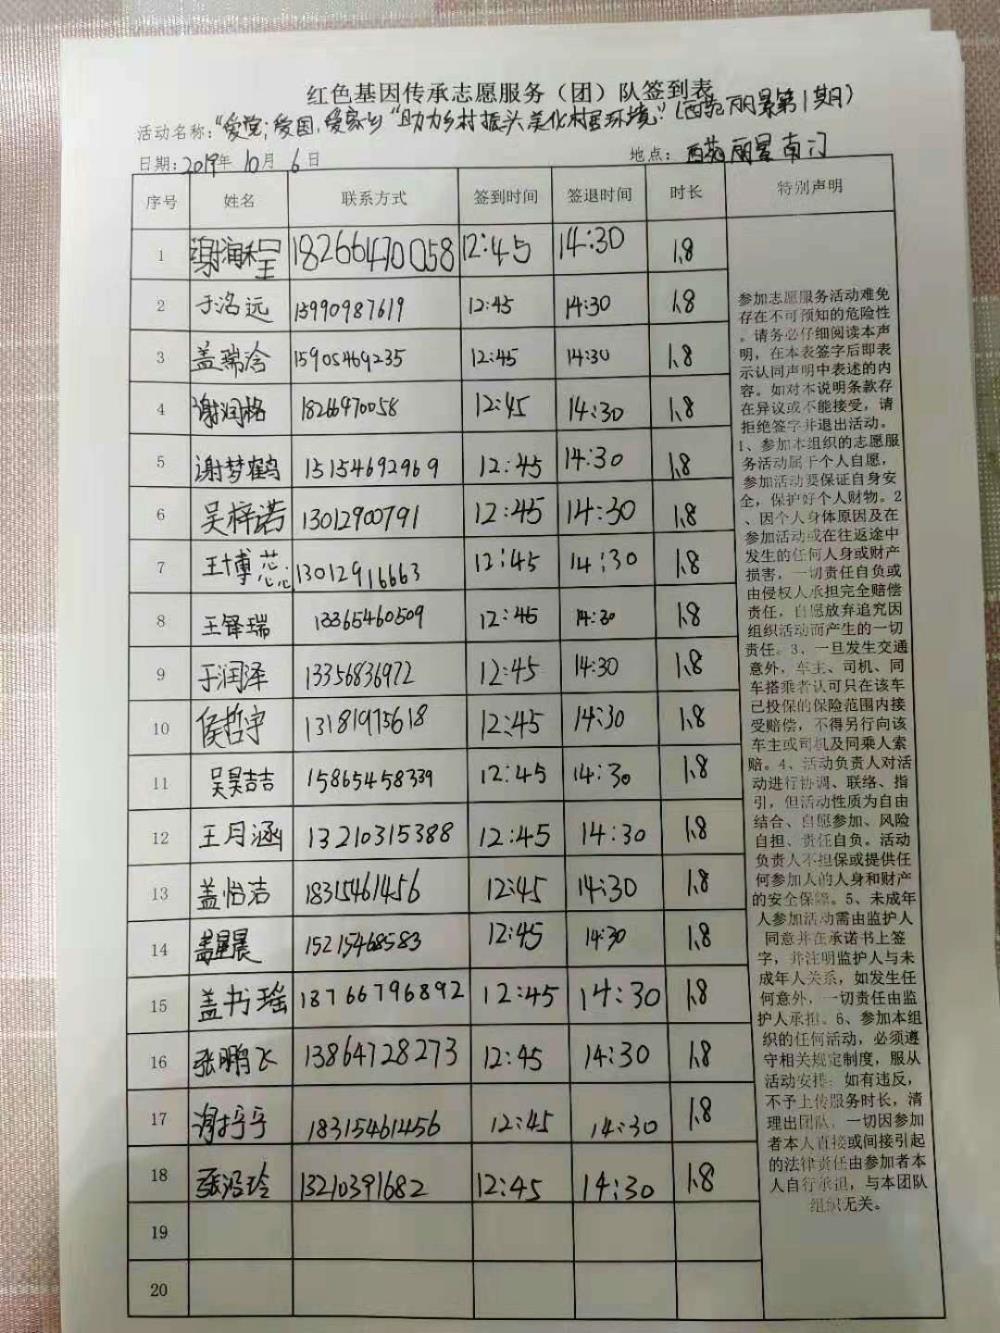 红色基因传承志愿服务（团）队签到表
活动名称：“爱党；爱国，爱家乡“助力乡村振头美化村居环境”（西苑丽景第1期）
日期：2019年 10月 6日 地点：西苑丽景南门
序号 姓名 联系方式 签到时间 签退时间 时长 特别声明
1 谢润程 18266470058 12:45 14:30 1.8
2 于洺远 15990987619 12:45 14:30 1.8
3 盖瑞涵 15905469235 12:45 14:30 1.8
4 谢润格 18266470058 12:45 14:30 1.8
5 谢梦鹤 15154692969 12:45 14:30 1.8
6 吴梓诺 13012900791 12:45 14:30 1.8
7 王博芯 13012916663 12:45 14:30 1.8
8 王铎瑞 13365460509 12:45 14:30 1.8
9 于润泽 13356836972 12:45 14:30 1.8
10 侯哲宇 13181975618 12:45 14:30 1.8
11 吴昊喆 15865458339 12:45 14:30 1.8
12 王月涵 13210315388 12:45 14:30 1.8
13 盖怡洁 18315461456 12:45 14:30 1.8
14 盖星晨 15215468583 12:45 14:30 1.8
15 盖书瑶 18766796892 12:45 14:30 1.8
16 张鹏飞 13864728273 12:45 14:30 1.8
17 谢 18315461456 12:45 14:30 1.8
18 张 玲 13210391682 12:45 14:30 1.8
19
20
参加志愿服务活动难免
存在不可预知的危险性
。请务必仔细阅读本声
明，在本表签字后即表
示认同声明中表述的内
容。如对本说明条款存
在异议或不能接受，请
拒绝签字并退出活动。
1、参加本组织的志愿服
务活动属于个人自愿，
参加活动要保证自身安
全，保护好个人财物。2
、因个人身体原因及在
参加活动或在往返途中
发生的任何人身或财产
损害，一切责任自负或
由侵权人承担完全赔偿
责任，自愿放弃追究因
组织活动而产生的一切
责任。3、一旦发生交通
意外，车主、司机、同
车搭乘者认可只在该车
已投保的保险范围内接
受赔偿，不得另行向该
车主或司机及同乘人索
赔。4、活动负责人对活
动进行协调、联络、指
引，但活动性质为自由
结合、自愿参加、风险
自担、责任自负。活动
负责人不担保或提供任
何参加人的人身和财产
的安全保障。5、未成年
人参加活动需由监护人
同意并在承诺书上签
字，并注明监护人与未
成年人关系，如发生任
何意外，一切责任由监
护人承担。6、参加本组
织的任何活动，必须遵
守相关规定制度，服从
活动安排；如有违反，
不予上传服务时长，清
理出团队。一切因参加
者本人直接或间接引起
的法律责任由参加者本
人自行承担，与本团队
组织无关。